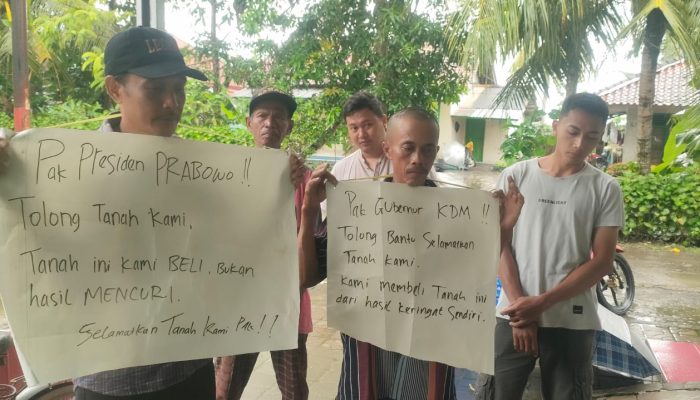 Pak Presiden PRABOWO !!
Tolong Tanah Kami,
Tanah ini Kami BELI, Bukan
hasil MENCURI.
Selamatkan Tanah Kami Pak !!
Pak Gubernur KDM !!
Tolong Bantu Selamatkan
Tanah Kami.
Kami membeli Tanah ini
dari hasil keringat Sendiri.